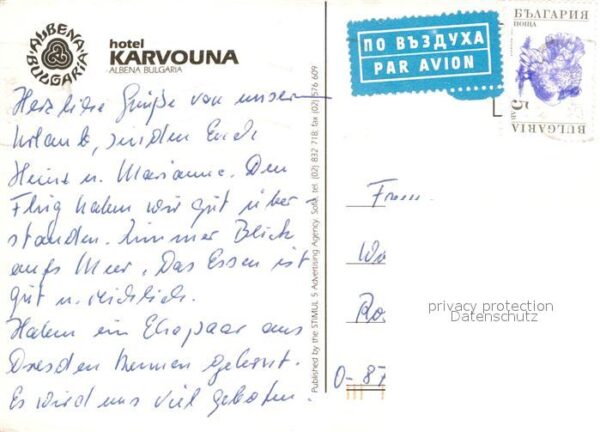 ALBENA
BULGARIA
hotel
KARVOUNA
ALBENA BULGARIA
Herzliche Grüße von unserem
Urlaub, senden Euch
Heinz u. Marianne. Den
Flug haben wir gut über-
standen. Zimmer Blick
aufs Meer. Das Essen ist
gut u. reichlich.
Haben ein Ehepaar aus
Dresden kennen gelernt.
Es wird uns viel geboten.
Published by the STIMUL 5 Advertising Agency. Sofia, tel. (02) 832 718; fax (02) 576 609
ПО ВЪЗДУХА
PAR AVION
БЪЛГАРИЯ
ПОЩА
5
BULGARIA
Frau
Ro
O-87
privacy protection
Datenschutz